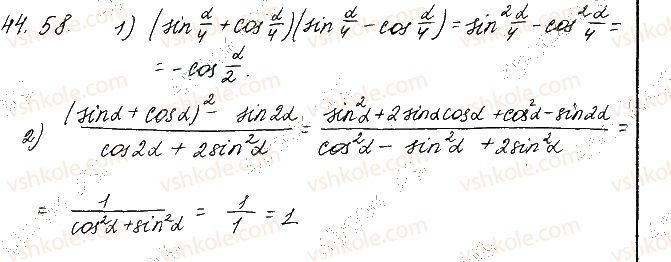 44.58. 1) (sin α/4 + cos α/4)(sin α/4 - cos α/4) = sin² α/4 - cos² α/4 =
= - cos α/2.
2) ((sinα + cosα)² - sin2α)/(cos2α + 2sin²α) = (sin²α + 2sinαcosα + cos²α - sin2α)/(cos²α - sin²α + 2sin²α) =
= 1/(cos²α + sin²α) = 1/1 = 1